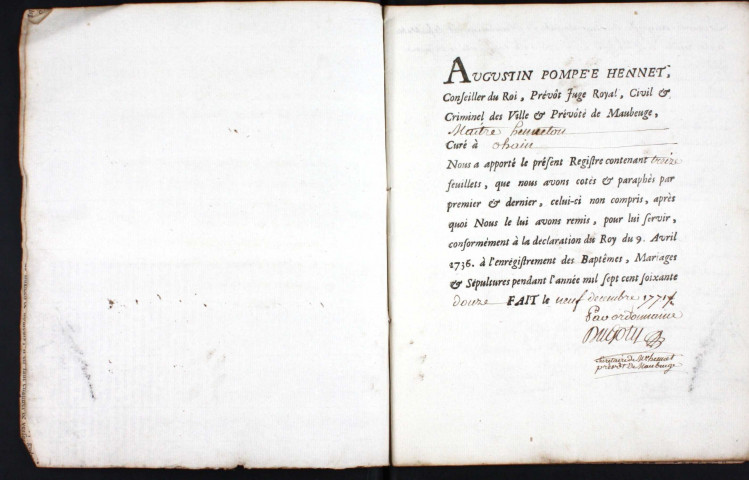 AUGUSTIN POMPÉE HENNET,
Conseiller du Roi, Prévôt Juge Royal, Civil &
Criminel des Ville & Prévôté de Maubeuge,
Maitre
Curé à ohain
Nous a apporté le présent Registre contenant treize
feuillets, que nous avons cotés & paraphés par
premier & dernier, celui-ci non compris, après
quoi Nous le lui avons remis, pour lui servir,
conformément à la declaration du Roy du 9. Avril
1736. à l'enrégistrement des Baptêmes, Mariages
& Sépultures pendant l'année mil sept cent soixante
douze FAIT le neuf decembre 1771
Par ordonnance
Secretaire de Mr hennet
prevôt de Maubeuge